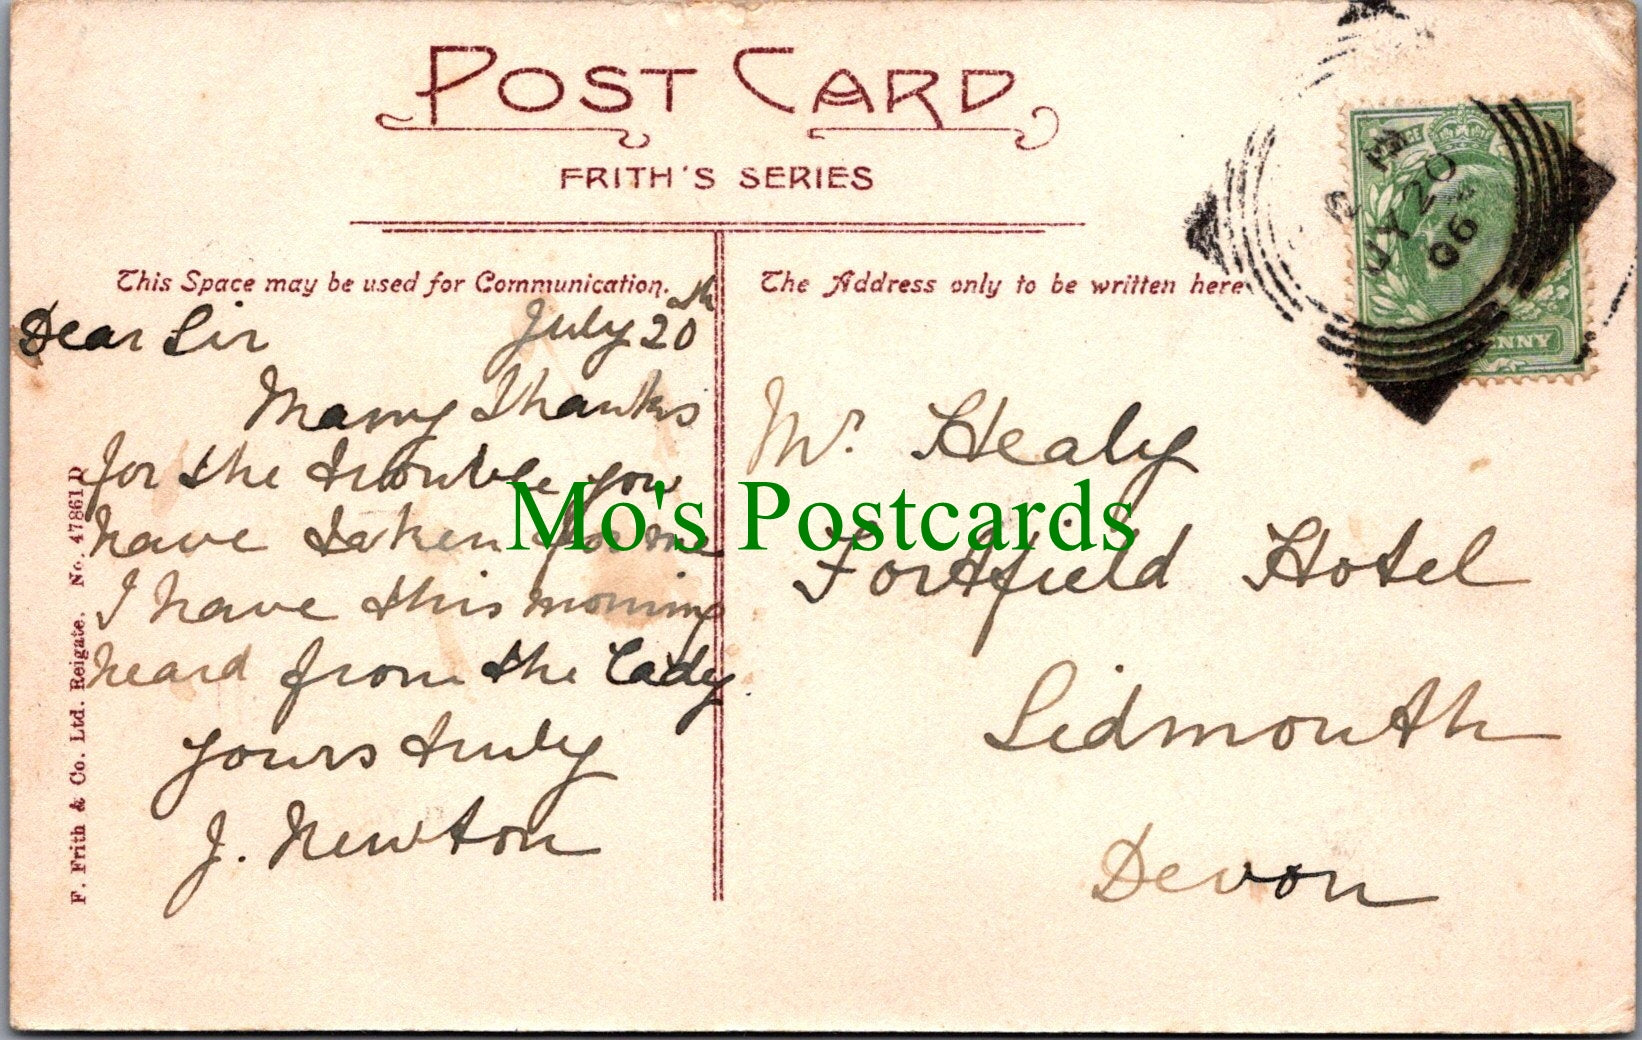 POST CARD
FRITH'S SERIES
This Space may be used for Communication.
The Address only to be written here
Dear Sir July 20th
Many Thanks
for the trouble you
have taken for me
I have this morning
heard from the Lady.
yours truly
J. Newton
Mr. Healy
Fortfield Hotel
Sidmouth
Devon
F. Frith & Co. Ltd. Reigate. No. 47861 D
Mo's Postcards
PM
JY 20
06
NNY